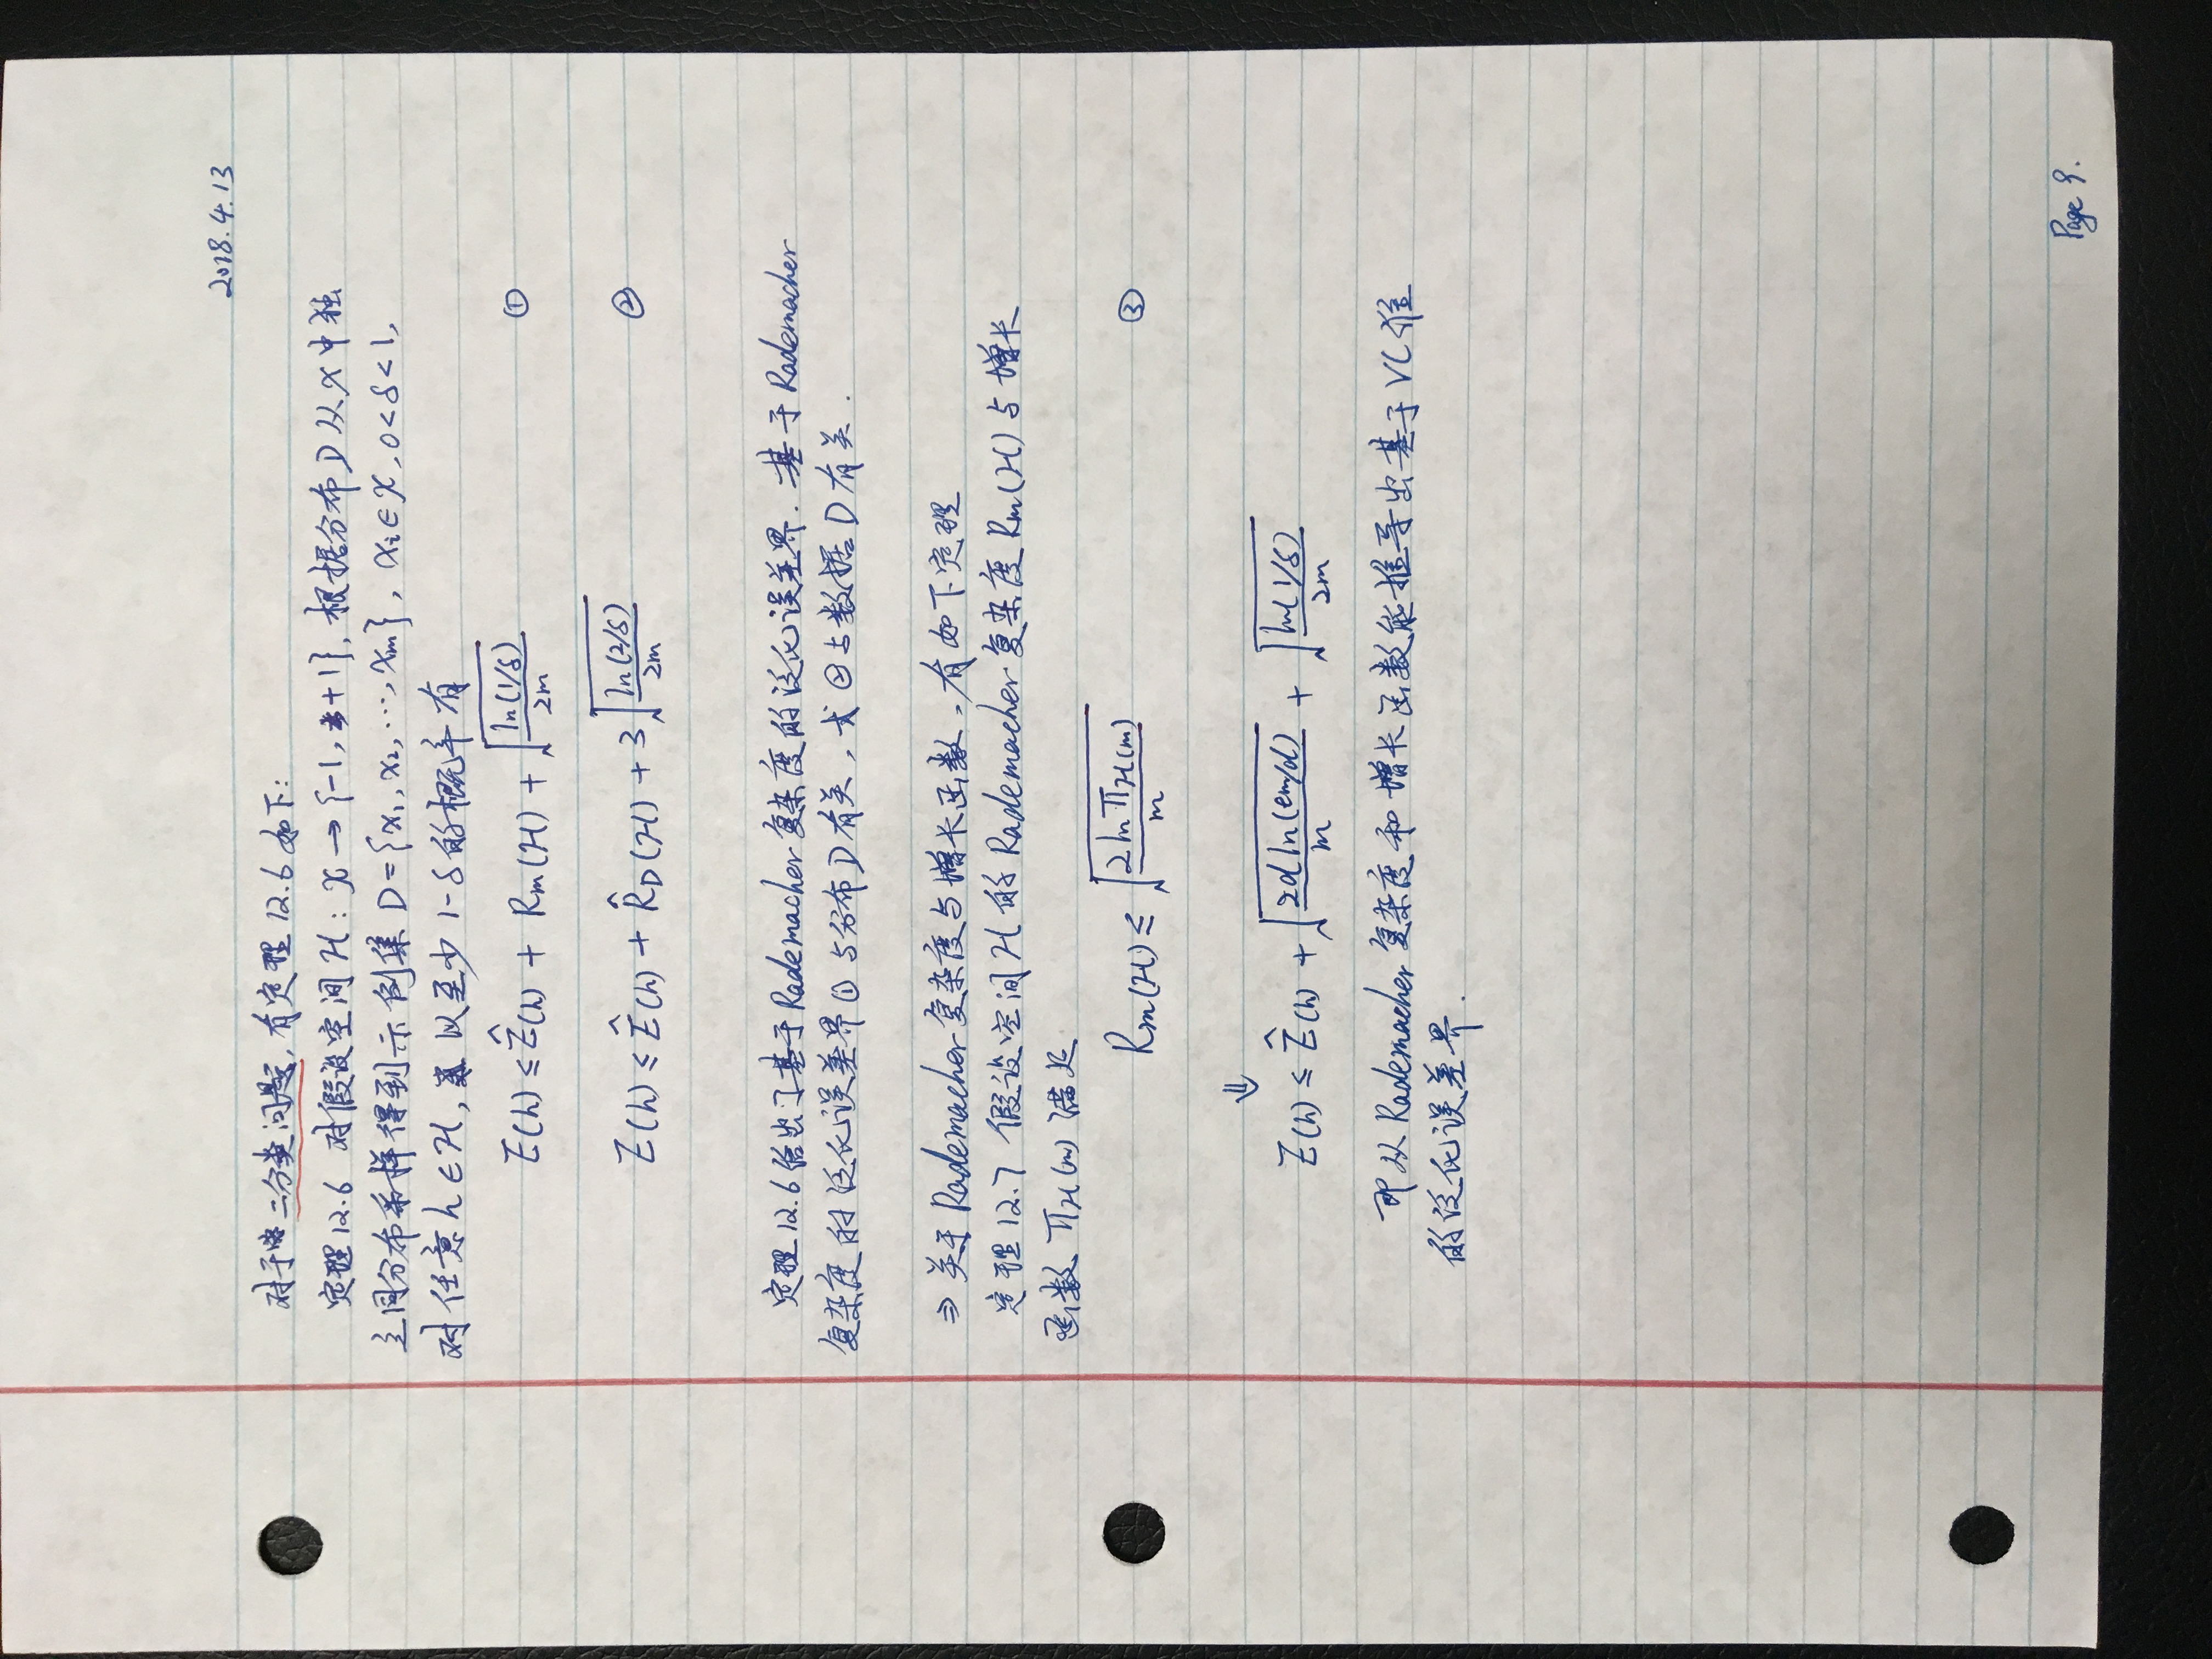 2018.4.13
对于二分类问题,有定理12.6如下:
定理12.6 对假设空间H: X→{-1, +1}, 根据分布D从X中独
立同分布采样得到示例集 D={x₁, x₂, ⋯, xₘ}, xᵢ∈X, 0<δ<1,
对任意h∈H, 以至少1-δ的概率有
E(h) ≤ Ê(h) + Rm(H) + √(ln(1/δ)/2m) ①
E(h) ≤ Ê(h) + R̂D(H) + 3√(ln(2/δ)/2m) ②
定理12.6给出了基于Rademacher复杂度的泛化误差界. 基于Rademacher
复杂度的泛化误差界①与分布D有关, 式②与数据D有关.
⇒ 关于Rademacher复杂度与增长函数, 有如下定理
定理12.7 假设空间H的Rademacher复杂度Rm(H)与增长
函数 ΠH(m) 满足
Rm(H) ≤ √(2lnΠH(m)/m) ③
⇓
E(h) ≤ Ê(h) + √(2d ln(em/d)/m) + √(ln(1/δ)/2m)
即从Rademacher复杂度和增长函数能推导出基于VC维
的泛化误差界.
Page 9.